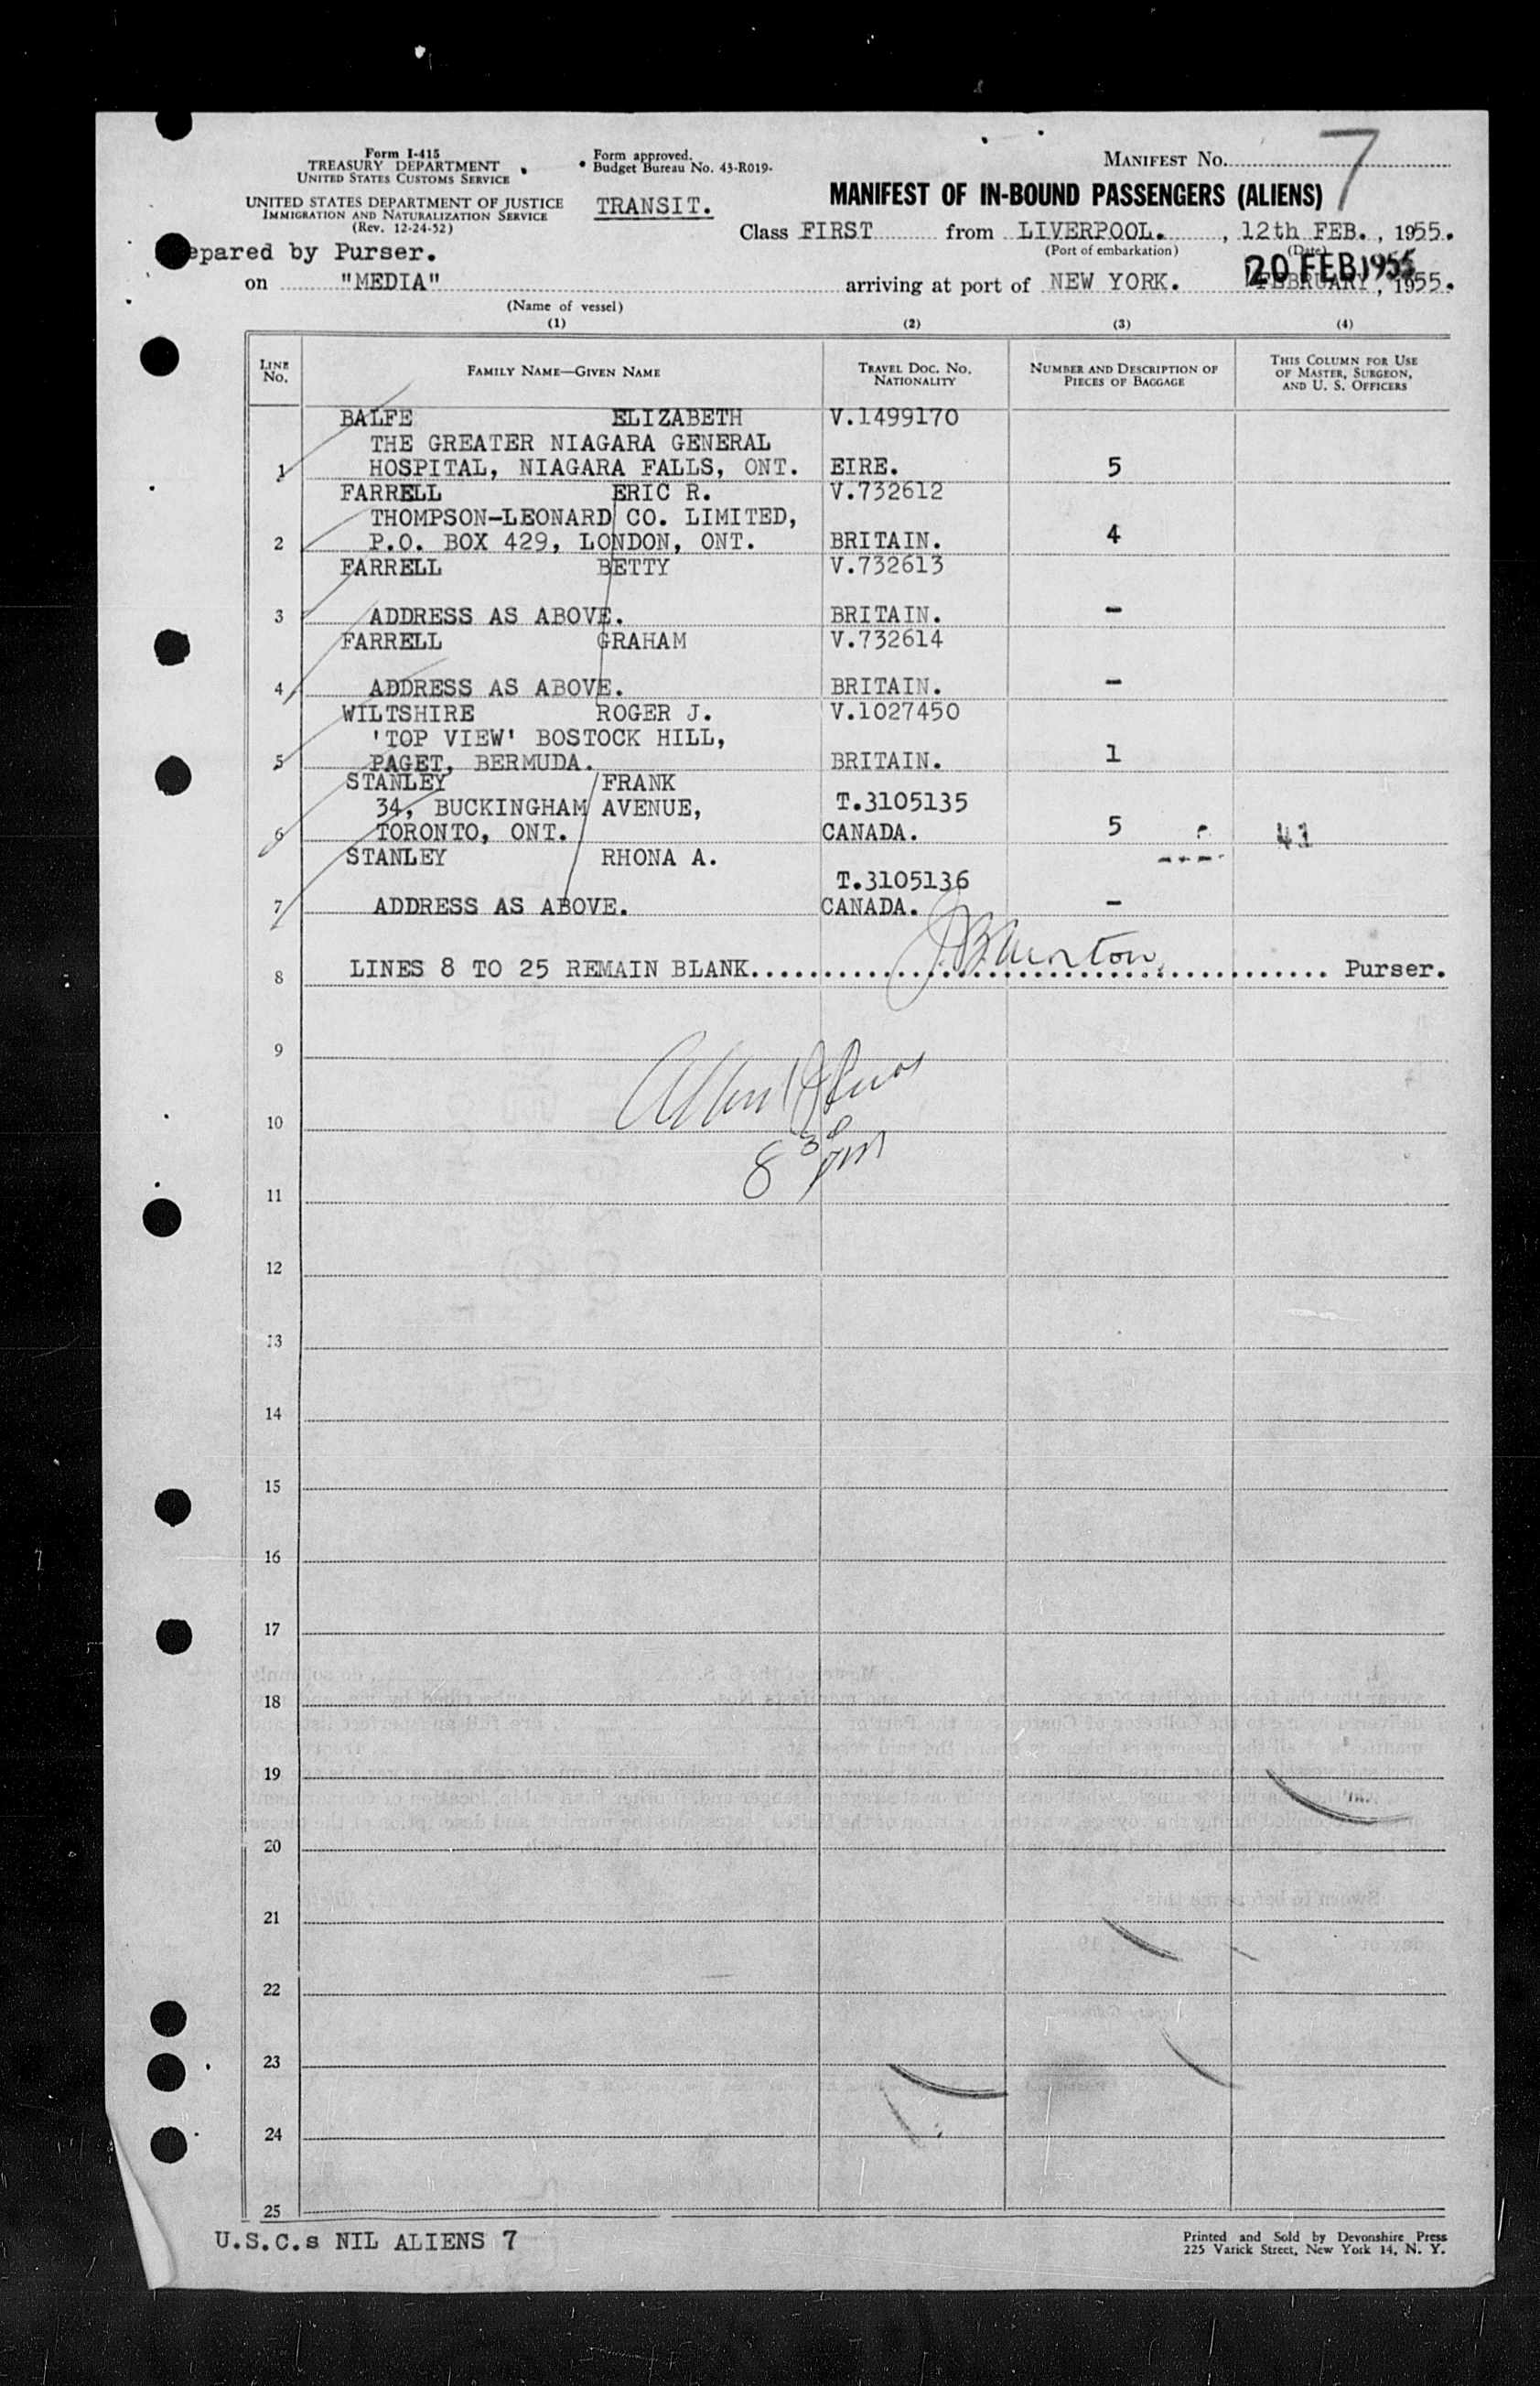 Form I-415
TREASURY DEPARTMENT
UNITED STATES CUSTOMS SERVICE
UNITED STATES DEPARTMENT OF JUSTICE
IMMIGRATION AND NATURALIZATION SERVICE
(Rev. 12-24-52)
Form approved.
Budget Bureau No. 43-R019-
TRANSIT.
MANIFEST NO. 7
MANIFEST OF IN-BOUND PASSENGERS (ALIENS)
Class FIRST from LIVERPOOL. , 12th FEB. , 1955.
(Port of embarkation) (Date)
epared by Purser.
on "MEDIA" arriving at port of NEW YORK. FEBRUARY, 1955.
20 FEB 1955
(Name of vessel)
(1) (2) (3) (4)
LINE NO. FAMILY NAME—GIVEN NAME TRAVEL DOC. NO. NATIONALITY NUMBER AND DESCRIPTION OF PIECES OF BAGGAGE THIS COLUMN FOR USE OF MASTER, SURGEON, AND U. S. OFFICERS
BALFE ELIZABETH V.1499170
THE GREATER NIAGARA GENERAL
1 HOSPITAL, NIAGARA FALLS, ONT. EIRE. 5
FARRELL ERIC R. V.732612
THOMPSON-LEONARD CO. LIMITED,
2 P.O. BOX 429, LONDON, ONT. BRITAIN. 4
FARRELL BETTY V.732613
3 ADDRESS AS ABOVE. BRITAIN. -
FARRELL GRAHAM V.732614
4 ADDRESS AS ABOVE. BRITAIN. -
WILTSHIRE ROGER J. V.1027450
'TOP VIEW' BOSTOCK HILL,
5 PAGET, BERMUDA. BRITAIN. 1
STANLEY FRANK
34, BUCKINGHAM AVENUE, T.3105135
6 TORONTO, ONT. CANADA. 5 41
STANLEY RHONA A.
T.3105136
7 ADDRESS AS ABOVE. CANADA. -
8 LINES 8 TO 25 REMAIN BLANK. Purser.
9
10
8 30 PM
11
12
13
14
15
16
17
18
19
20
21
22
23
24
25
U.S.C.s NIL ALIENS 7
Printed and Sold by Devonshire Press
225 Varick Street, New York 14, N. Y.